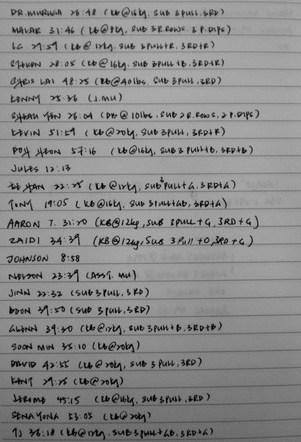 DR. MURUGA 28:48 (KB@16kg, SUB 3PULL, 3RD)
MALAR 31:46 (KB@8kg, SUB 3R.ROWS, 2 P.DIPS)
LC 29:59 (KB@12kg, SUB 3PULL+R, 3RD+R)
28:05 (KB@16kg, SUB 3PULL+B, 3RD+R)
CHRIS LAI 48:25 (KB@40lbs, SUB 3PULL, 3RD)
KENNY 25:36 (J.MU)
26:04 (DB@10lbs, SUB 2R.ROWS, 2 P.DIPS)
KEVIN 51:29 (KB@20kg, SUB 3PULL, 3RD+R)
57:16 (KB@16kg, SUB 3PULL+B, 3RD+B)
JULES 12:13
22:25 (KB@12kg, SUB 2PULL+G, 3RD+G)
TONY 19:05 (KB@16kg, SUB 3PULL+GB, 3RD+G)
AARON T. 31:20 (KB@12kg, SUB 3PULL+G, 3RD+G)
ZAIDI 34:39 (KB@12kg, SUB 3PULL+O, 3RD+G)
JOHNSON 8:58
NELSON 23:39 (ASST. MU)
JINN 22:32 (SUB 3PULL, 3RD)
EDON 39:50 (SUB 3PULL, 3RD)
GLENN 39:30 (KB@12kg, SUB 3PULL+B, 3RD+B)
SOON MIN 35:10 (KB@20kg)
DAVID 42:55 (KB@20kg, SUB 3PULL, 3RD)
29:25 (KB@20kg)
JEROME 45:15 (KB@16kg, SUB 3PULL, 3RD)
53:05 (KB@20kg)
TJ 38:18 (KB@12kg, SUB 3PULL+GB, 3RD+G)